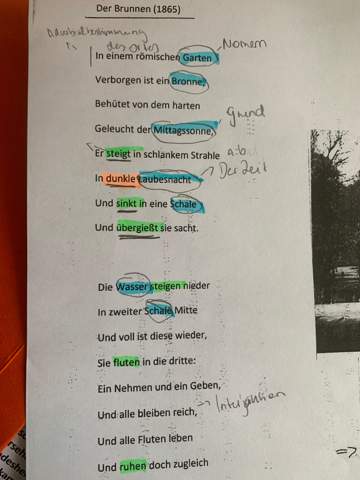 Der Brunnen (1865)
Adverbialbestimmung
des Ortes
Nomen
In einem römischen Garten
Verborgen ist ein Bronne,
Behütet von dem harten
Grund
Geleucht der Mittagssonne,
Er steigt in schlankem Strahle a.b.
Der Zeit
In dunkle Laubesnacht
Und sinkt in eine Schale
Und übergießt sie sacht.
Die Wasser steigen nieder
In zweiter Schale Mitte
Und voll ist diese wieder,
Sie fluten in die dritte:
Ein Nehmen und ein Geben,
Und alle bleiben reich,
Und alle Fluten leben
Und ruhen doch zugleich